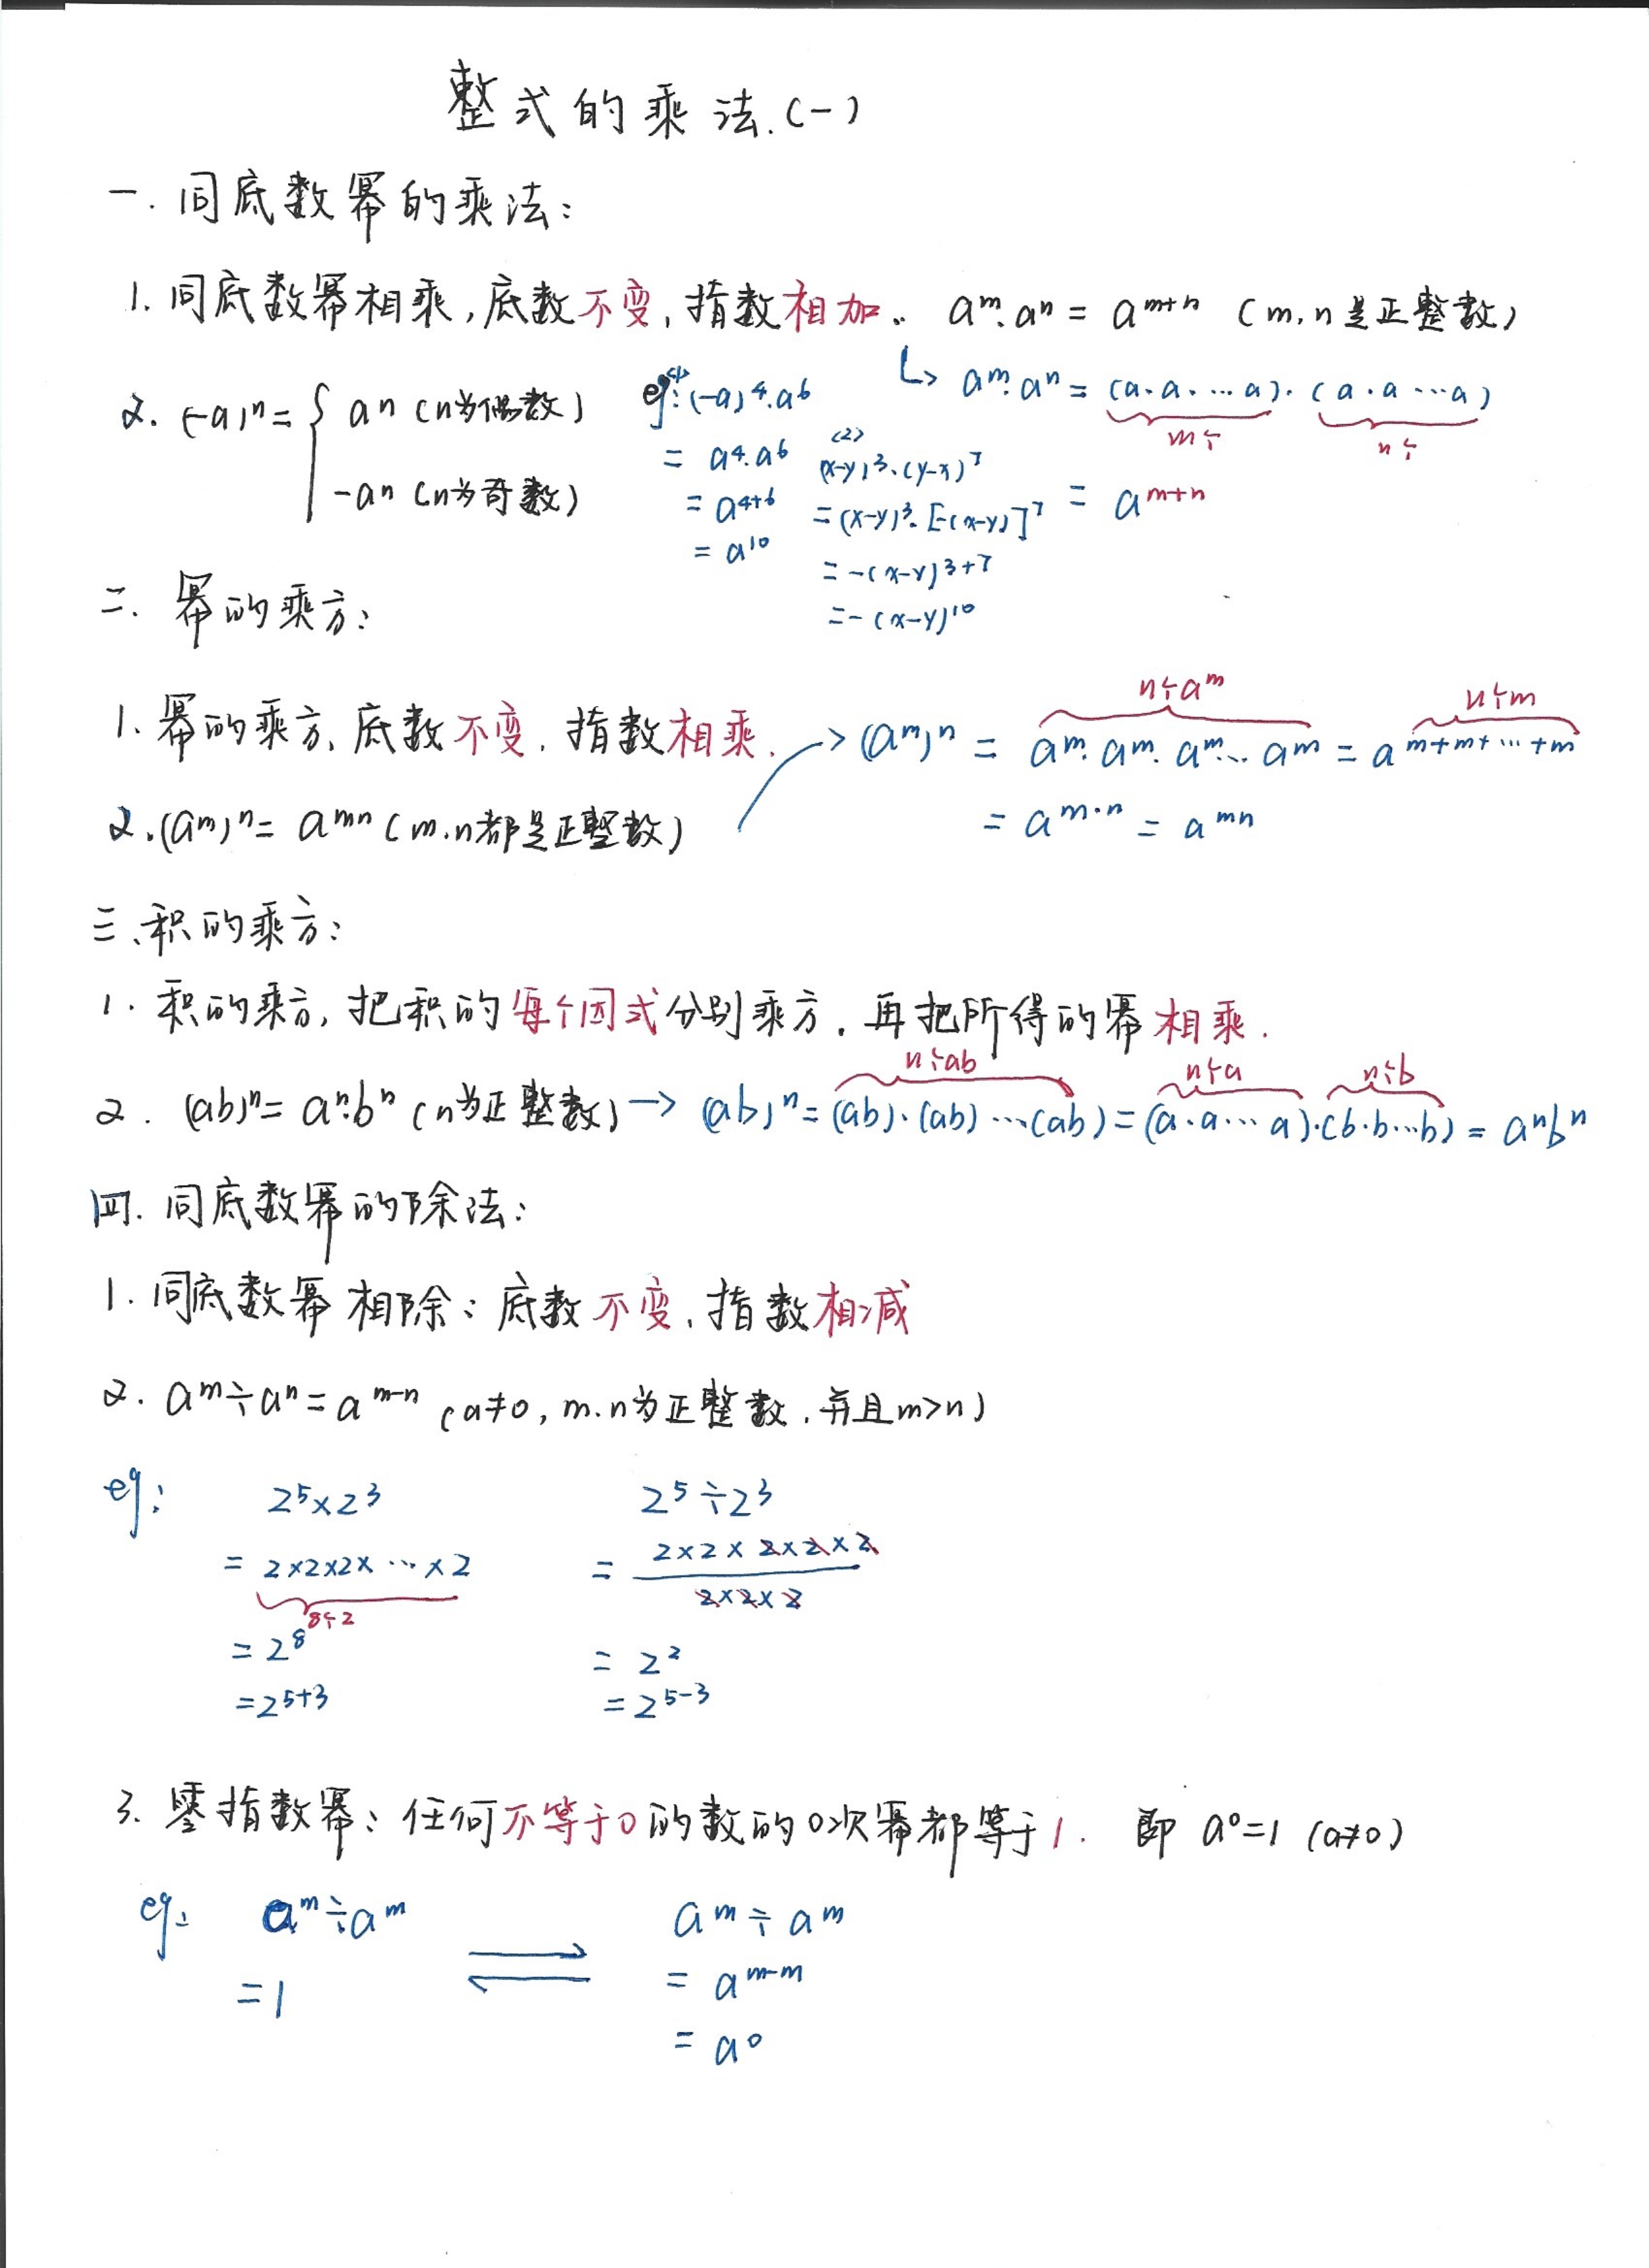 整式的乘法.(一)
一. 同底数幂的乘法:
1. 同底数幂相乘,底数不变,指数相加。 aᵐ·aⁿ = aᵐ⁺ⁿ (m,n是正整数)
↳ aᵐ·aⁿ = (a·a·…a)·(a·a…a)
m个 n个
= aᵐ⁺ⁿ
2. (-a)ⁿ = { aⁿ (n为偶数)
-aⁿ (n为奇数)
eg: (1) (-a)⁴·a⁶
= a⁴·a⁶
= a⁴⁺⁶
= a¹⁰
(2) (x-y)³·(y-x)⁷
= (x-y)³·[-(x-y)]⁷
= -(x-y)³⁺⁷
= -(x-y)¹⁰
二. 幂的乘方:
1. 幂的乘方,底数不变,指数相乘.
2. (aᵐ)ⁿ = aᵐⁿ (m.n都是正整数)
n个aᵐ n个m
→ (aᵐ)ⁿ = aᵐ·aᵐ·aᵐ…aᵐ = a^(m+m+…+m)
= a^(m·n) = aᵐⁿ
三、积的乘方:
1. 积的乘方,把积的每个因式分别乘方.再把所得的幂相乘.
n个ab n个a n个b
2. (ab)ⁿ = aⁿ·bⁿ (n为正整数) → (ab)ⁿ = (ab)·(ab)…(ab) = (a·a…a)·(b·b…b) = aⁿbⁿ
四. 同底数幂的除法:
1. 同底数幂相除:底数不变,指数相减
2. aᵐ÷aⁿ = aᵐ⁻ⁿ (a≠0, m.n为正整数,并且m>n)
eg: 2⁵×2³
= 2×2×2×…×2
8个2
= 2⁸
= 2⁵⁺³
2⁵÷2³
= 2×2×2×2×2
2×2×2
= 2²
= 2⁵⁻³
3. 零指数幂:任何不等于0的数的0次幂都等于1. 即 a⁰=1 (a≠0)
eg: aᵐ÷aᵐ
=1
⇄
aᵐ÷aᵐ
= aᵐ⁻ᵐ
= a⁰